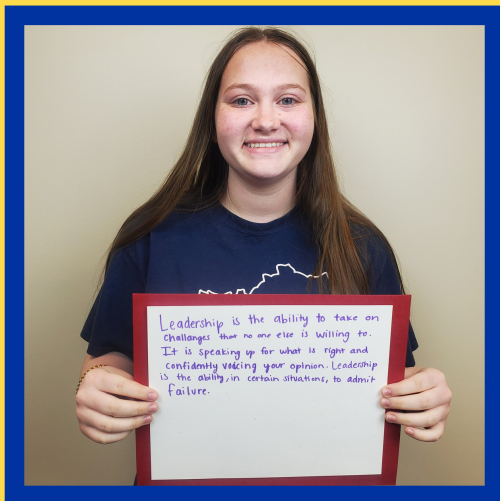 Leadership is the ability to take on
challanges that no one else is willing to.
It is speaking up for what is right and
confidently voicing your opinion. Leadership
is the ability, in certain situations, to admit
failure.